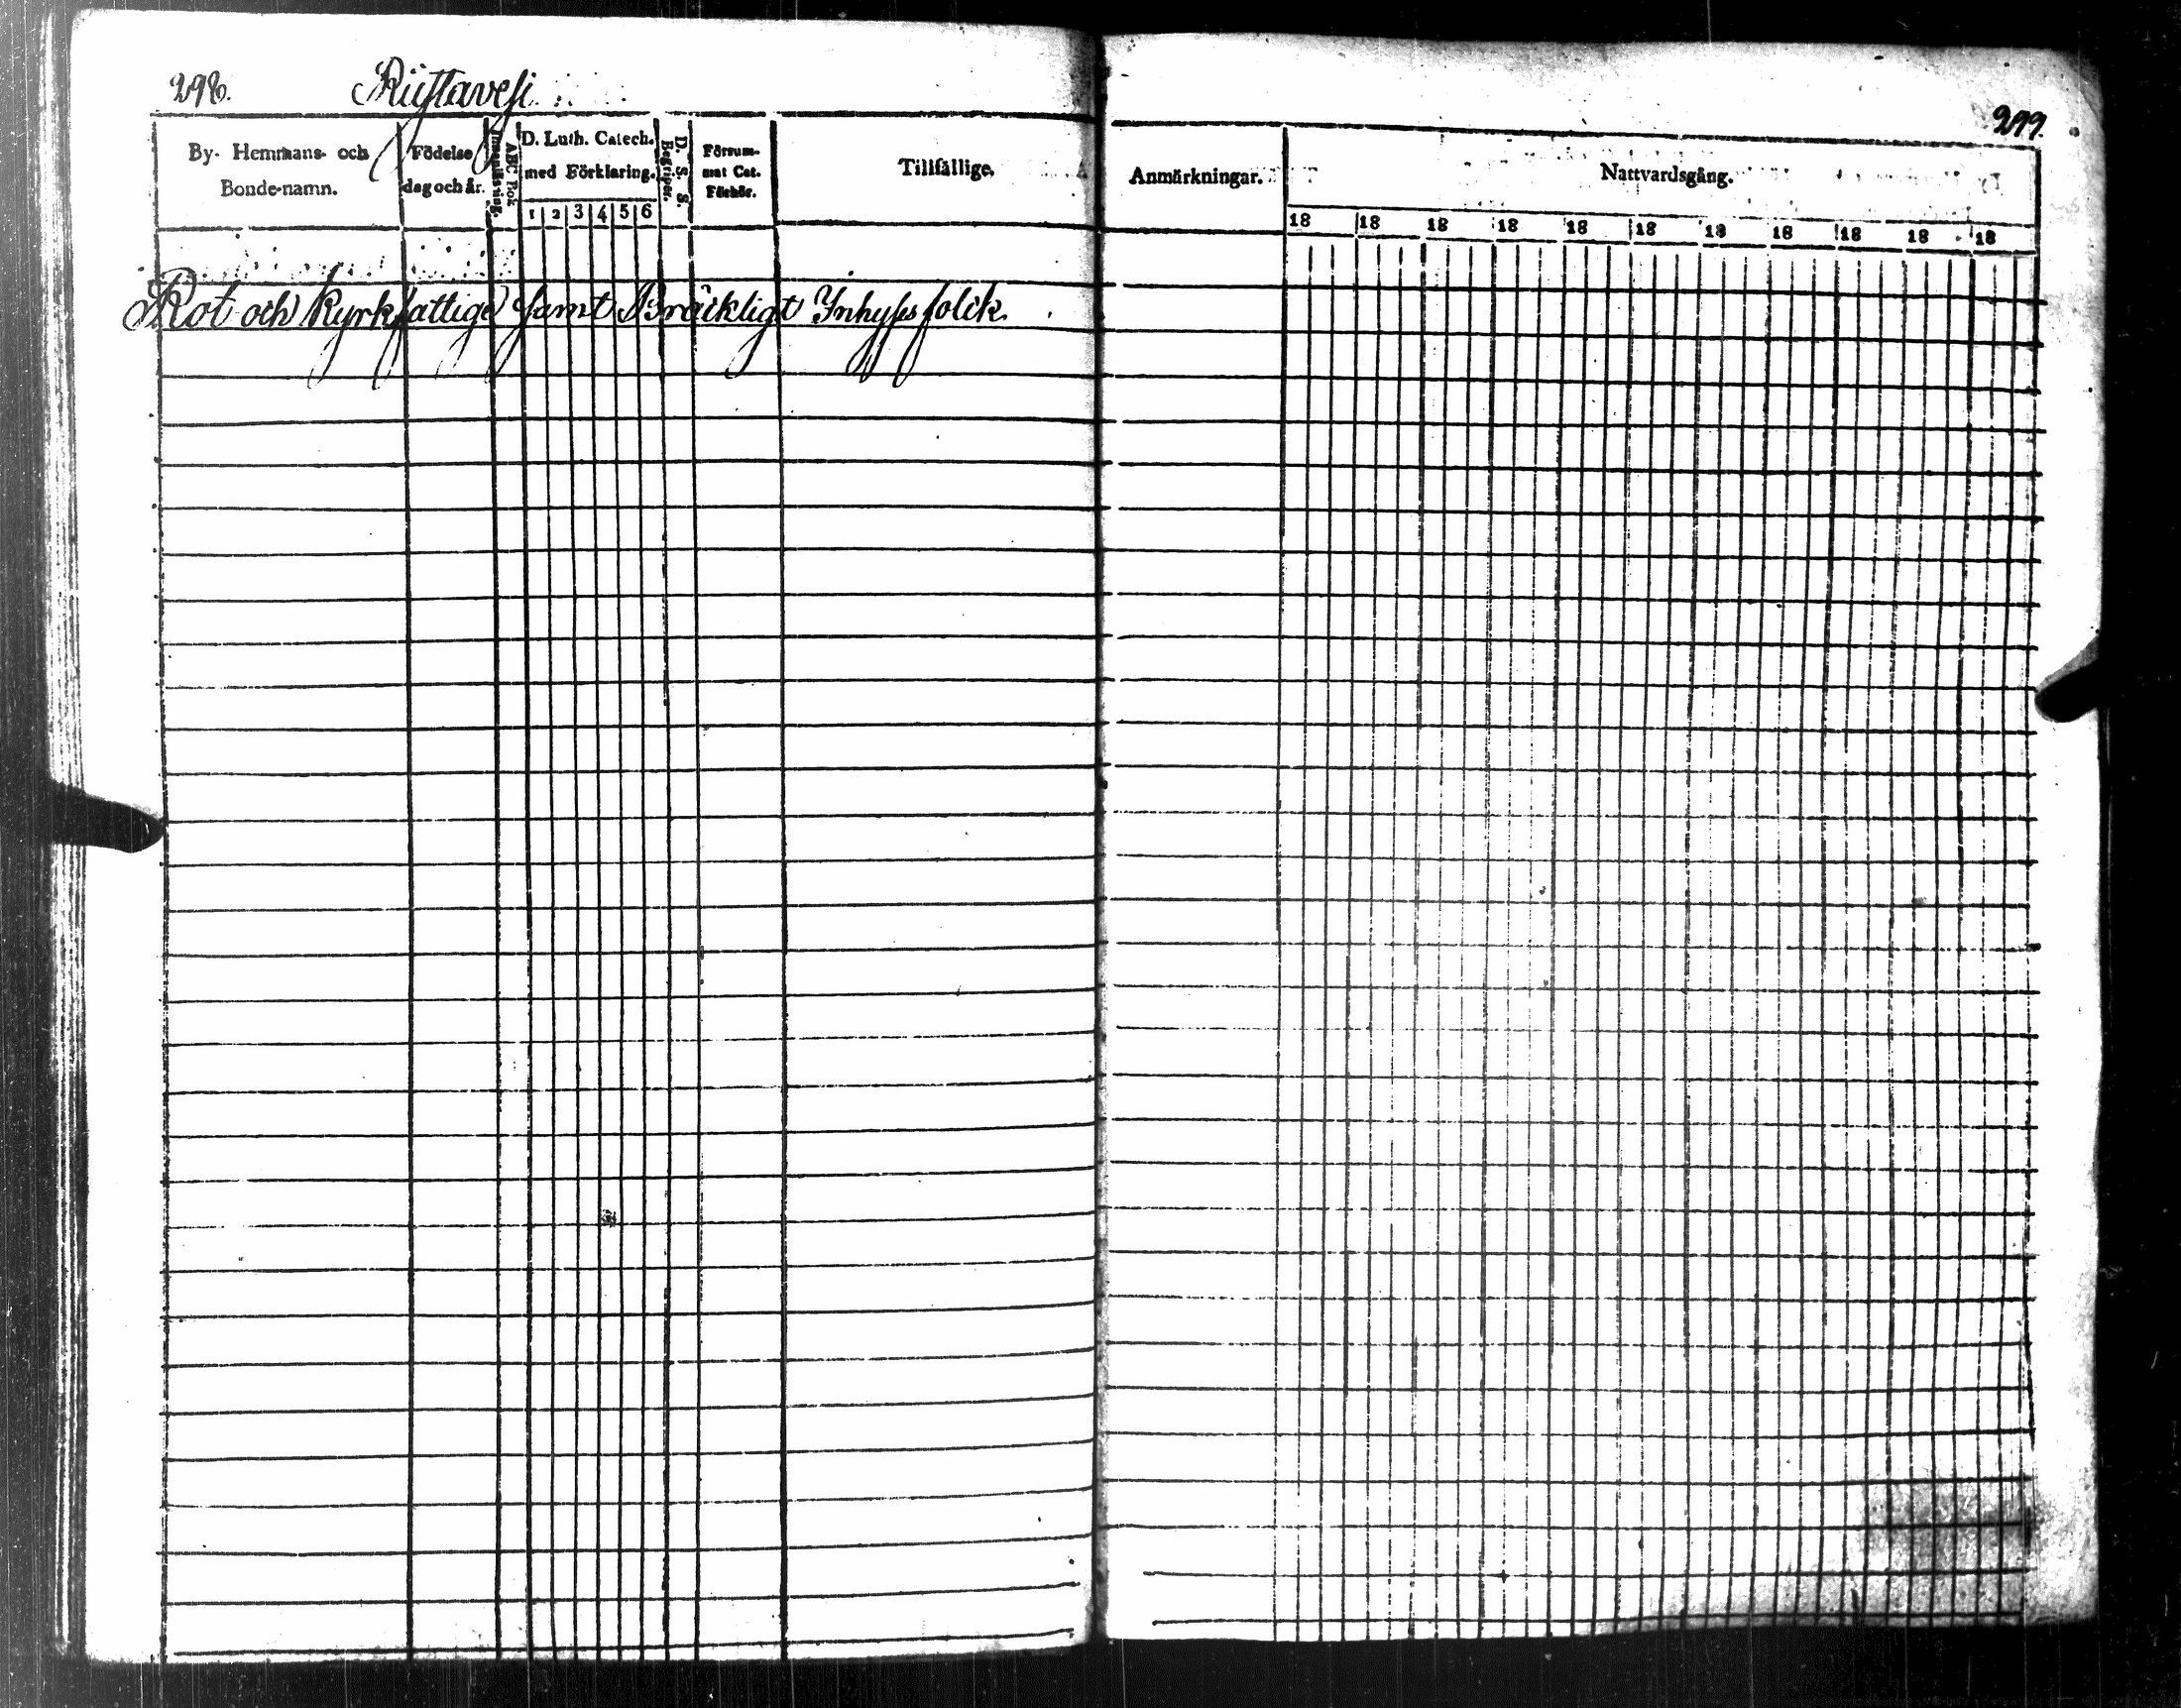 298. Riistavesi
299.
By- Hemmans- och Bonde-namn.
Födelse dag och år.
Innanläsning.
ABC Bok
D. Luth. Catech. med Förklaring.
1 2 3 4 5 6
D. S. S. Begriper.
Försum- mat Cat. Förhör.
Tillfällige.
Anmärkningar.
Nattvardsgång.
18 18 18 18 18 18 18 18 18 18 18
Rot och Kyrkfattige samt Bräckligt Inhysesfolck